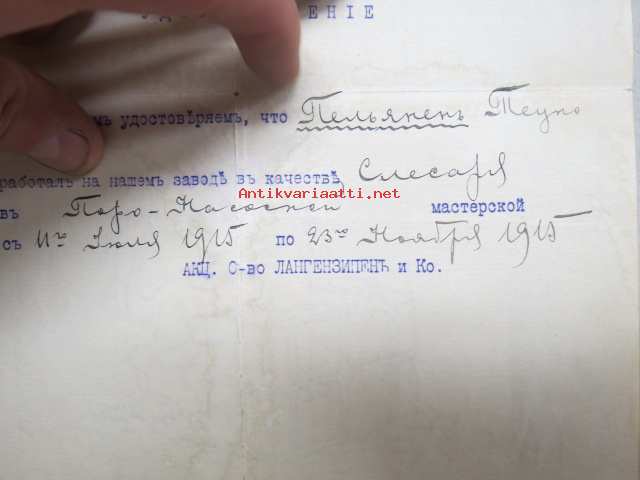 ЕНІЕ
удостовѣряемъ, что Пельянен Теуно
работалъ на нашемъ заводѣ въ качествѣ Слесаря
Antikvariaatti.net
въ Паро-Насосной мастерской
съ 11го Іюля 1915 по 23го Ноября 1915
АКЦ. О-во ЛАНГЕНЗИПЕНЪ и Ко.